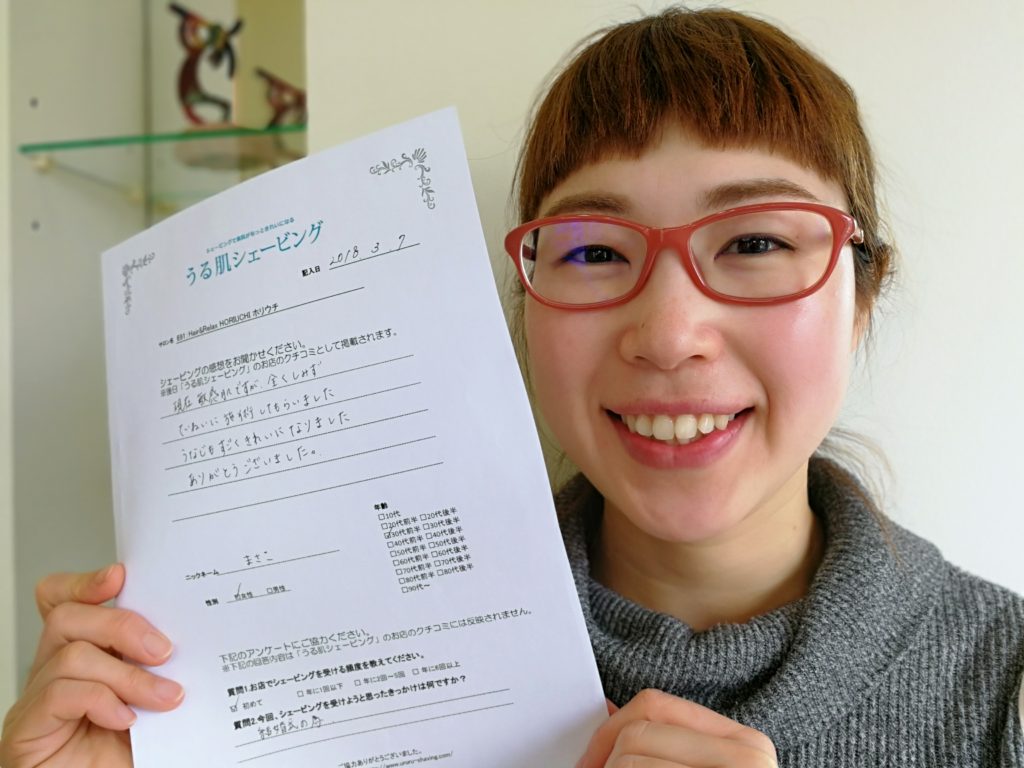 シェービングで素肌がもっときれいになる
うる肌シェービング
記入日 2018 3 7
サロン名 E81:Hair&Relax HORIUCHI ホリウチ
シェービングの感想をお聞かせください。
※後日「うる肌シェービング」のお店のクチコミとして掲載されます。
現在 敏感肌ですが 全くしみず
ていねいに 施術してもらいました
うなじもすごくきれいになりました
ありがとうございました。
ニックネーム まさこ
性別 ☑女性 □男性
年齢
□10代
□20代前半 □20代後半
☑30代前半 □30代後半
□40代前半 □40代後半
□50代前半 □50代後半
□60代前半 □60代後半
□70代前半 □70代後半
□80代前半 □80代後半
□90代～
下記のアンケートにご協力ください。
※下記の回答内容は「うる肌シェービング」のお店のクチコミには反映されません。
質問1.お店でシェービングを受ける頻度を教えてください。
☑ 初めて □ 年に1回以下 □ 年に2回～5回 □ 年に6回以上
質問2.今回、シェービングを受けようと思ったきっかけは何ですか？
結婚式の為
ご協力ありがとうございました。
//www.ururu-shaving.com/